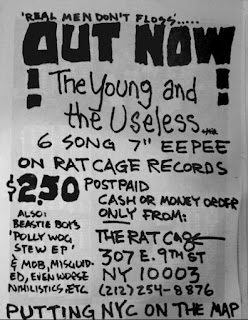 'REAL MEN DON'T FLOSS'.....
OUT NOW
! The Young and !
the Useless...
6 SONG 7" EEPEE
ON RAT CAGE RECORDS
$2.50 POSTPAID
CASH OR MONEY ORDER
ONLY FROM:
ALSO:
BEASTIE BOYS
'POLLY WOG
STEW EP'
& MOB, MISGUID-
ED, EVEN WORSE
NIHILISTICS, ETC.
THE RAT Cage
307 E. 9TH ST
NY 10003
(212) 254-8876
PUTTING NYC ON THE MAP